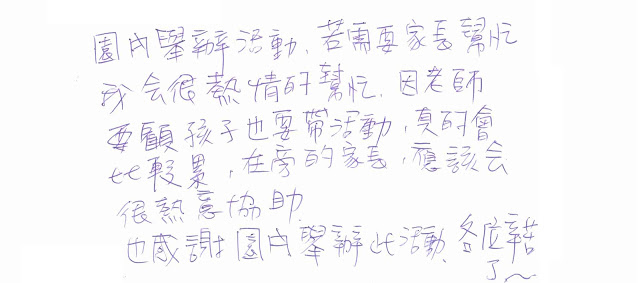 園內舉辦活動、若需要家長幫忙
我会很熱情的幫忙、因老師
要顧孩子也要帶活動，真的會
比較累，在旁的家長，應該会
很熱意協助.
也感謝園內舉辦此活動、各位辛苦
了～